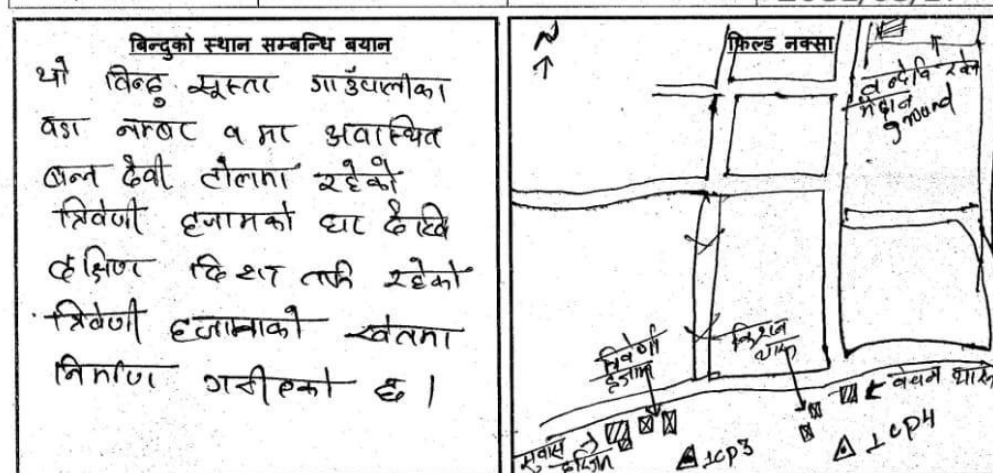 बिन्दुको स्थान सम्बन्धि बयान
यो विन्दु सूस्ता गाउँपालीका
वडा नम्बर १ मा अवास्थित
बन्न देवी टोलमा रहेको
त्रिवेणी हजामको घर देखि
दक्षिण दिशा तर्फ रहेको
त्रिवेणी हजामको खेतमा
निर्माण गरीएको छ।
फिल्ड नक्सा
N
मैदान
ground
त्रिवेणी
हजाम
किशन
सुवास
हरिजन
1cp3
1cp4